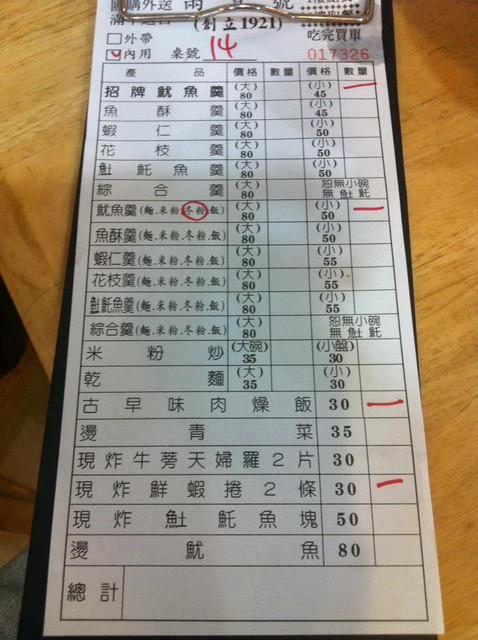 團購外送 兩 號
(創立1921) 吃完買單
□外帶
☑內用 桌號 14 017326
產 品 價格 數量 價格 數量
招牌魷魚羹 (大) 80 (小) 45 一
魚酥羹 (大) 80 (小) 45
蝦仁羹 (大) 80 (小) 50
花枝羹 (大) 80 (小) 50
𩵚魠魚羹 (大) 80 (小) 50
綜合羹 (大) 80 恕無小碗 無𩵚魠
魷魚羹(麵.米粉.冬粉.飯) (大) 80 (小) 50 一
魚酥羹(麵.米粉.冬粉.飯) (大) 80 (小) 50
蝦仁羹(麵.米粉.冬粉.飯) (大) 80 (小) 55
花枝羹(麵.米粉.冬粉.飯) (大) 80 (小) 55
𩵚魠魚羹(麵.米粉.冬粉.飯) (大) 80 (小) 55
綜合羹(麵.米粉.冬粉.飯) (大) 80 恕無小碗 無𩵚魠
米粉炒 (大碗) 35 (小盤) 30
乾麵 (大) 35 (小) 30
古早味肉燥飯 30 一
燙青菜 35
現炸牛蒡天婦羅2片 30
現炸鮮蝦捲2條 30 一
現炸𩵚魠魚塊 50
燙魷魚 80
總計